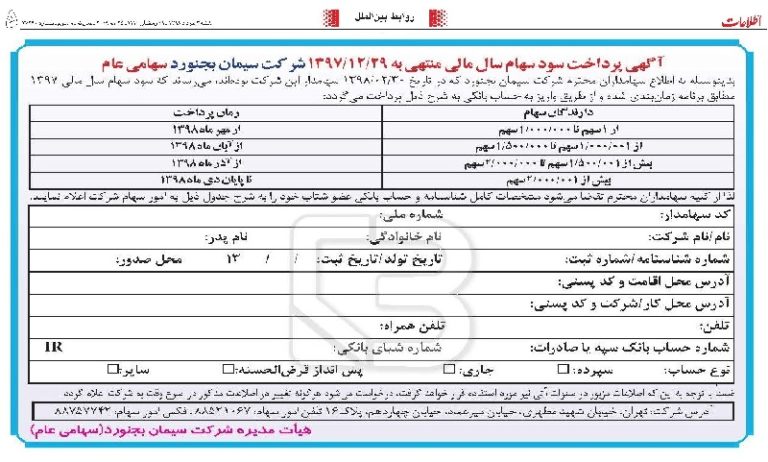 اطلاعات
روابط بین‌الملل
آگهی پرداخت سود سهام سال مالی منتهی به ۱۳۹۷/۱۲/۲۹ شرکت سیمان بجنورد سهامی عام
بدینوسیله به اطلاع سهامداران محترم شرکت سیمان بجنورد که در تاریخ ۱۳۹۸/۰۲/۳۰ سهامدار این شرکت بوده‌اند، می‌رساند که سود سهام سال مالی ۱۳۹۷
مطابق برنامه زمان‌بندی شده و از طریق واریز به حساب بانکی به شرح ذیل پرداخت می‌گردد:
دارندگان سهام زمان پرداخت
از ۱ سهم تا ۱/۰۰۰/۰۰۰ سهم از مهر ماه ۱۳۹۸
از ۱/۰۰۰/۰۰۱ تا ۱/۵۰۰/۰۰۰ سهم از آبان ماه ۱۳۹۸
بیش از ۱/۵۰۰/۰۰۱ سهم تا ۲/۰۰۰/۰۰۰ سهم از آذر ماه ۱۳۹۸
بیش از ۲/۰۰۰/۰۰۱ سهم تا پایان دی ماه ۱۳۹۸
لذا از کلیه سهامداران محترم تقاضا می‌شود مشخصات کامل شناسنامه و حساب بانکی عضو شتاب خود را به شرح جدول ذیل به امور سهام شرکت اعلام نمایند.
کد سهامدار: شماره ملی:
نام/نام شرکت: نام خانوادگی: نام پدر:
شماره شناسنامه/شماره ثبت: تاریخ تولد/تاریخ ثبت: / / ۱۳ محل صدور:
آدرس محل اقامت و کد پستی:
آدرس محل کار/شرکت و کد پستی:
تلفن: تلفن همراه:
شماره حساب بانک سپه یا صادرات: شماره شبای بانکی: IR
نوع حساب: سپرده: جاری: پس انداز قرض‌الحسنه: سایر:
ضمنا با توجه به این که اطلاعات مزبور در سنوات آتی نیز مورد استفاده قرار خواهد گرفت، درخواست می‌شود هرگونه تغییر در اطلاعات مذکور در اسرع وقت به شرکت اعلام گردد
آدرس شرکت: تهران، خیابان شهید مطهری، خیابان میرعماد، خیابان چهاردهم، پلاک ۱۶ تلفن امور سهام: ۸۸۵۲۱۰۶۷، فکس امور سهام: ۸۸۷۵۷۷۴۲
هیأت مدیره شرکت سیمان بجنورد(سهامی عام)